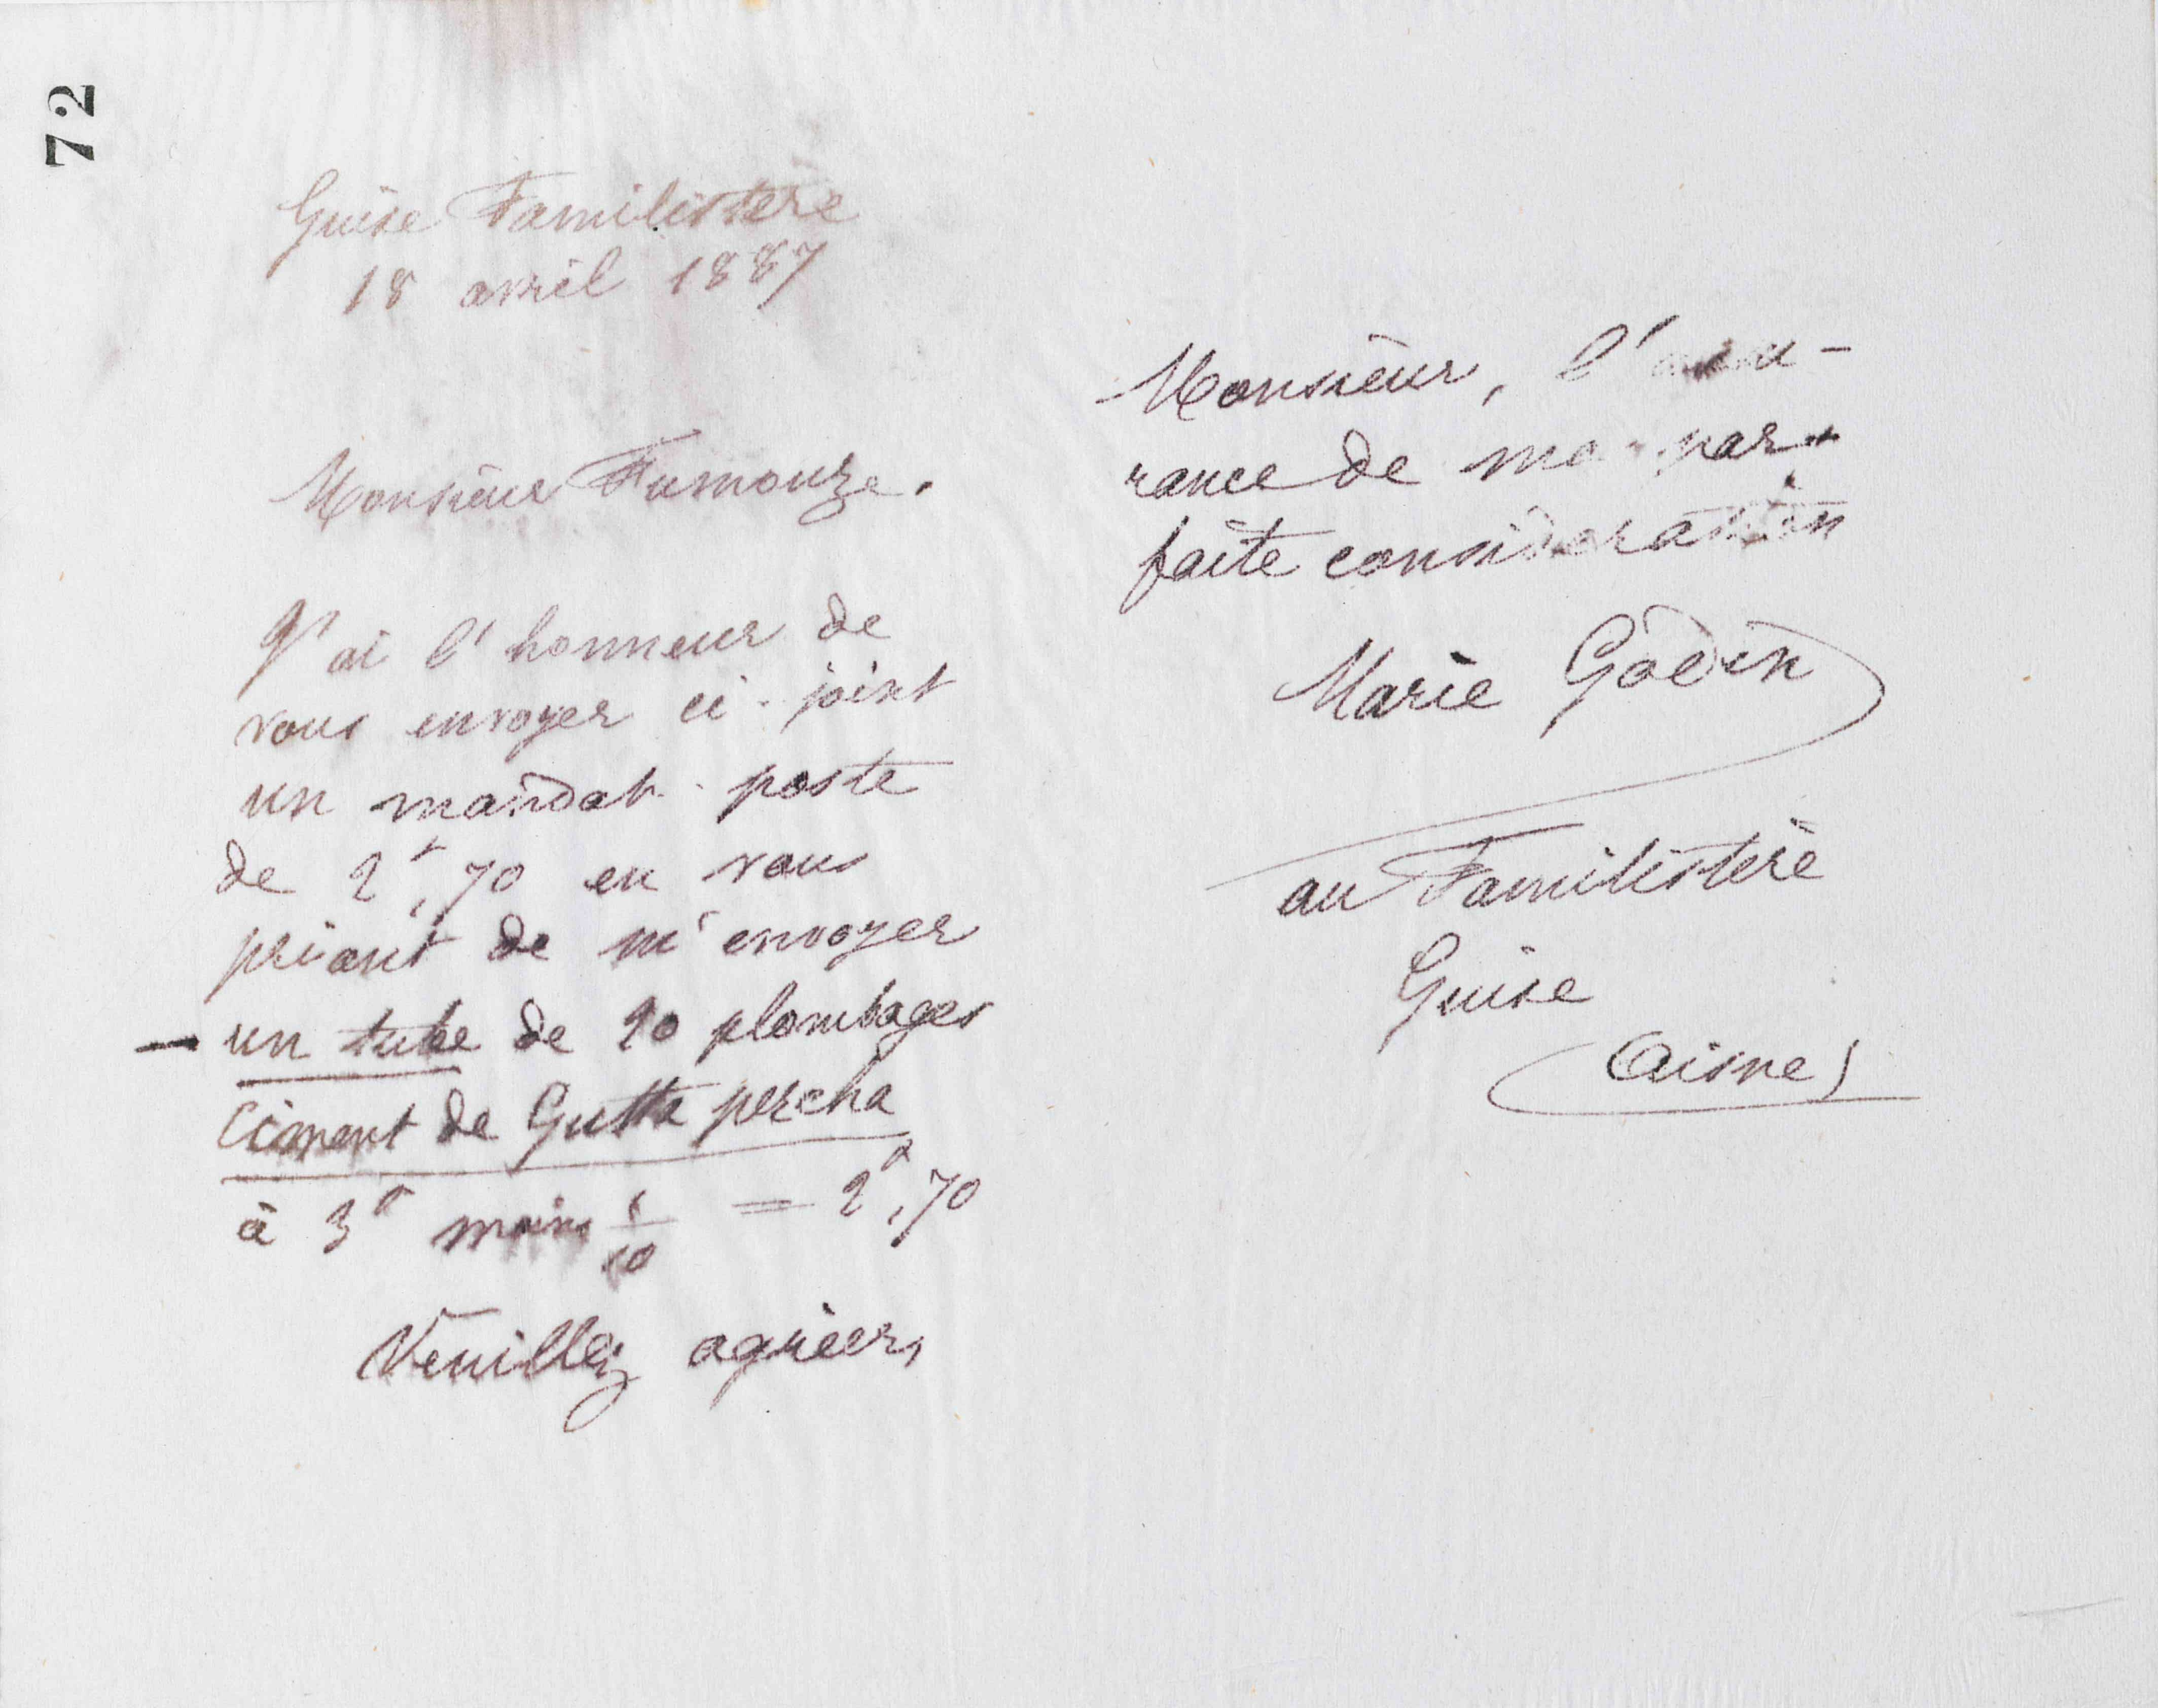 72
Guise Familistère
18 avril 1887
Monsieur Fumouze.
J'ai l'honneur de
vous envoyer ci-joint
un mandat-poste
de 2f,70 en vous
priant de m'envoyer
un tube de 20 plombages
Ciment de Gutta percha
à 3f moins 1/10 = 2f,70
Veuillez agréer,
Monsieur, l'assu-
rance de ma par-
faite considération
Marie Godin
au Familistère
Guise
(Aisne)